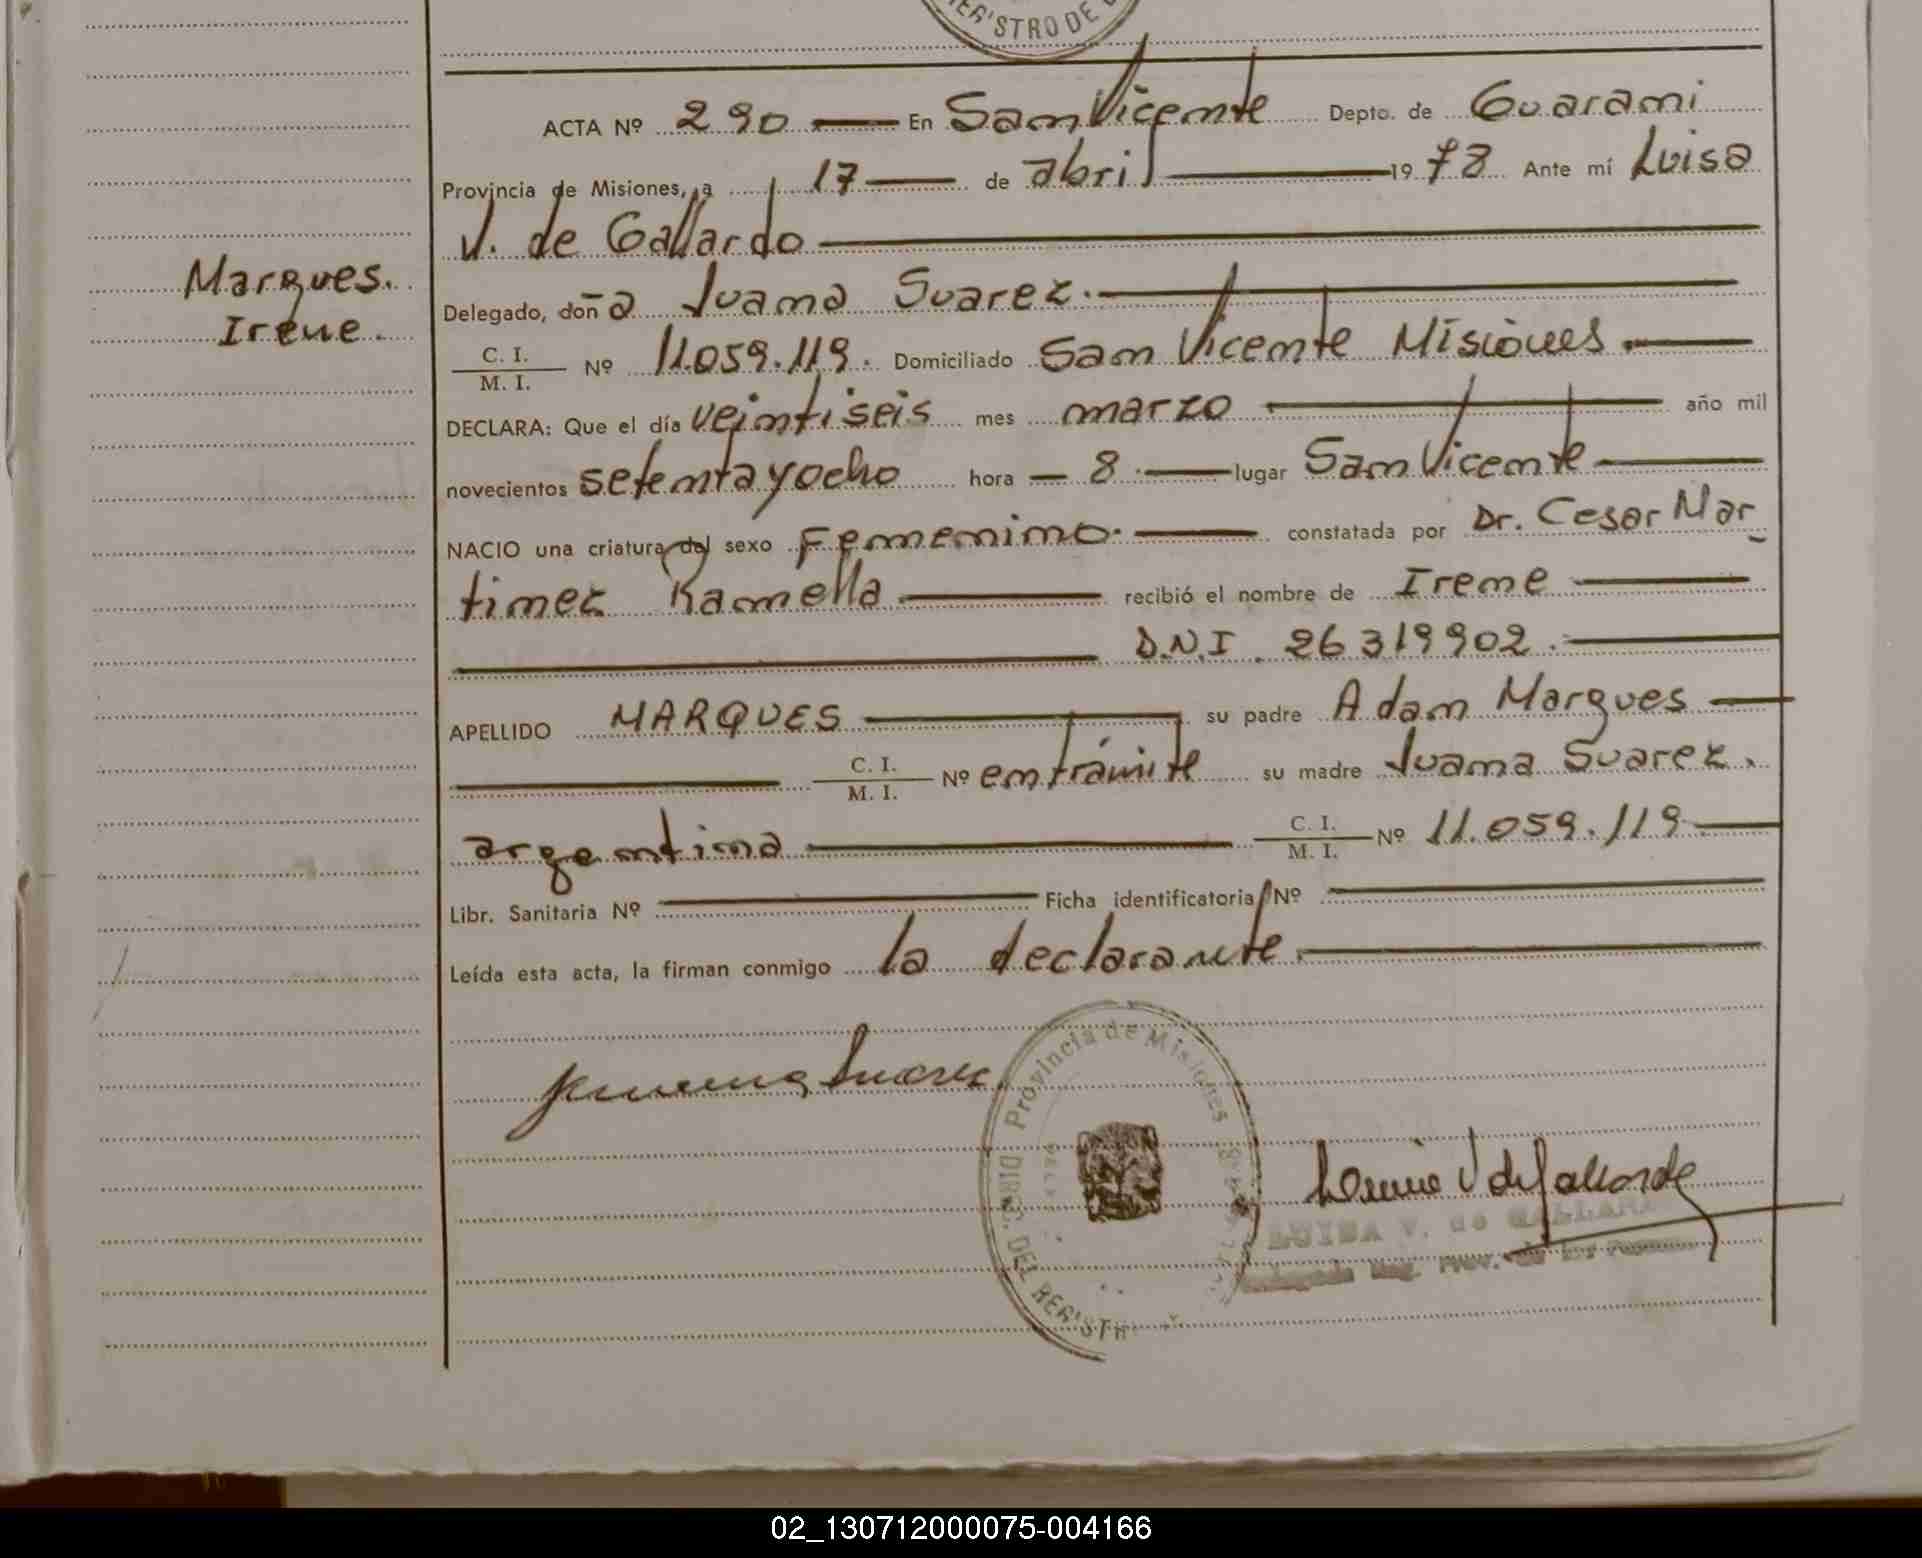 REG'STRO DE
ACTA Nº 290 — En San Vicente Depto. de Guarani
Provincia de Misiones, a 17 — de abril — 19 78 Ante mí Luisa
V. de Gallardo
Marques.
Irene.
Delegado, doña Juana Suarez.
C. I. / M. I. Nº 11.059.119. Domiciliado San Vicente Misiones.
DECLARA: Que el día veintiseis mes marzo — año mil
novecientos setenta y ocho hora — 8 — lugar San Vicente
NACIO una criatura del sexo Femenino. — constatada por Dr. Cesar Mar
tinez Ramella — recibió el nombre de Irene
D.N.I. 26319902.
APELLIDO MARQUES — su padre Adam Marques
C. I. / M. I. Nº en trámite su madre Juana Suarez.
argentina — C. I. / M. I. Nº 11.059.119
Libr. Sanitaria Nº — Ficha identificatoria Nº
Leída esta acta, la firman conmigo la declarante
Juana Suarez
Provincia de Misiones
DIREC. DEL REG'STR
Luisa V de Gallardo
LUISA V. de GALLARDO
02_130712000075-004166